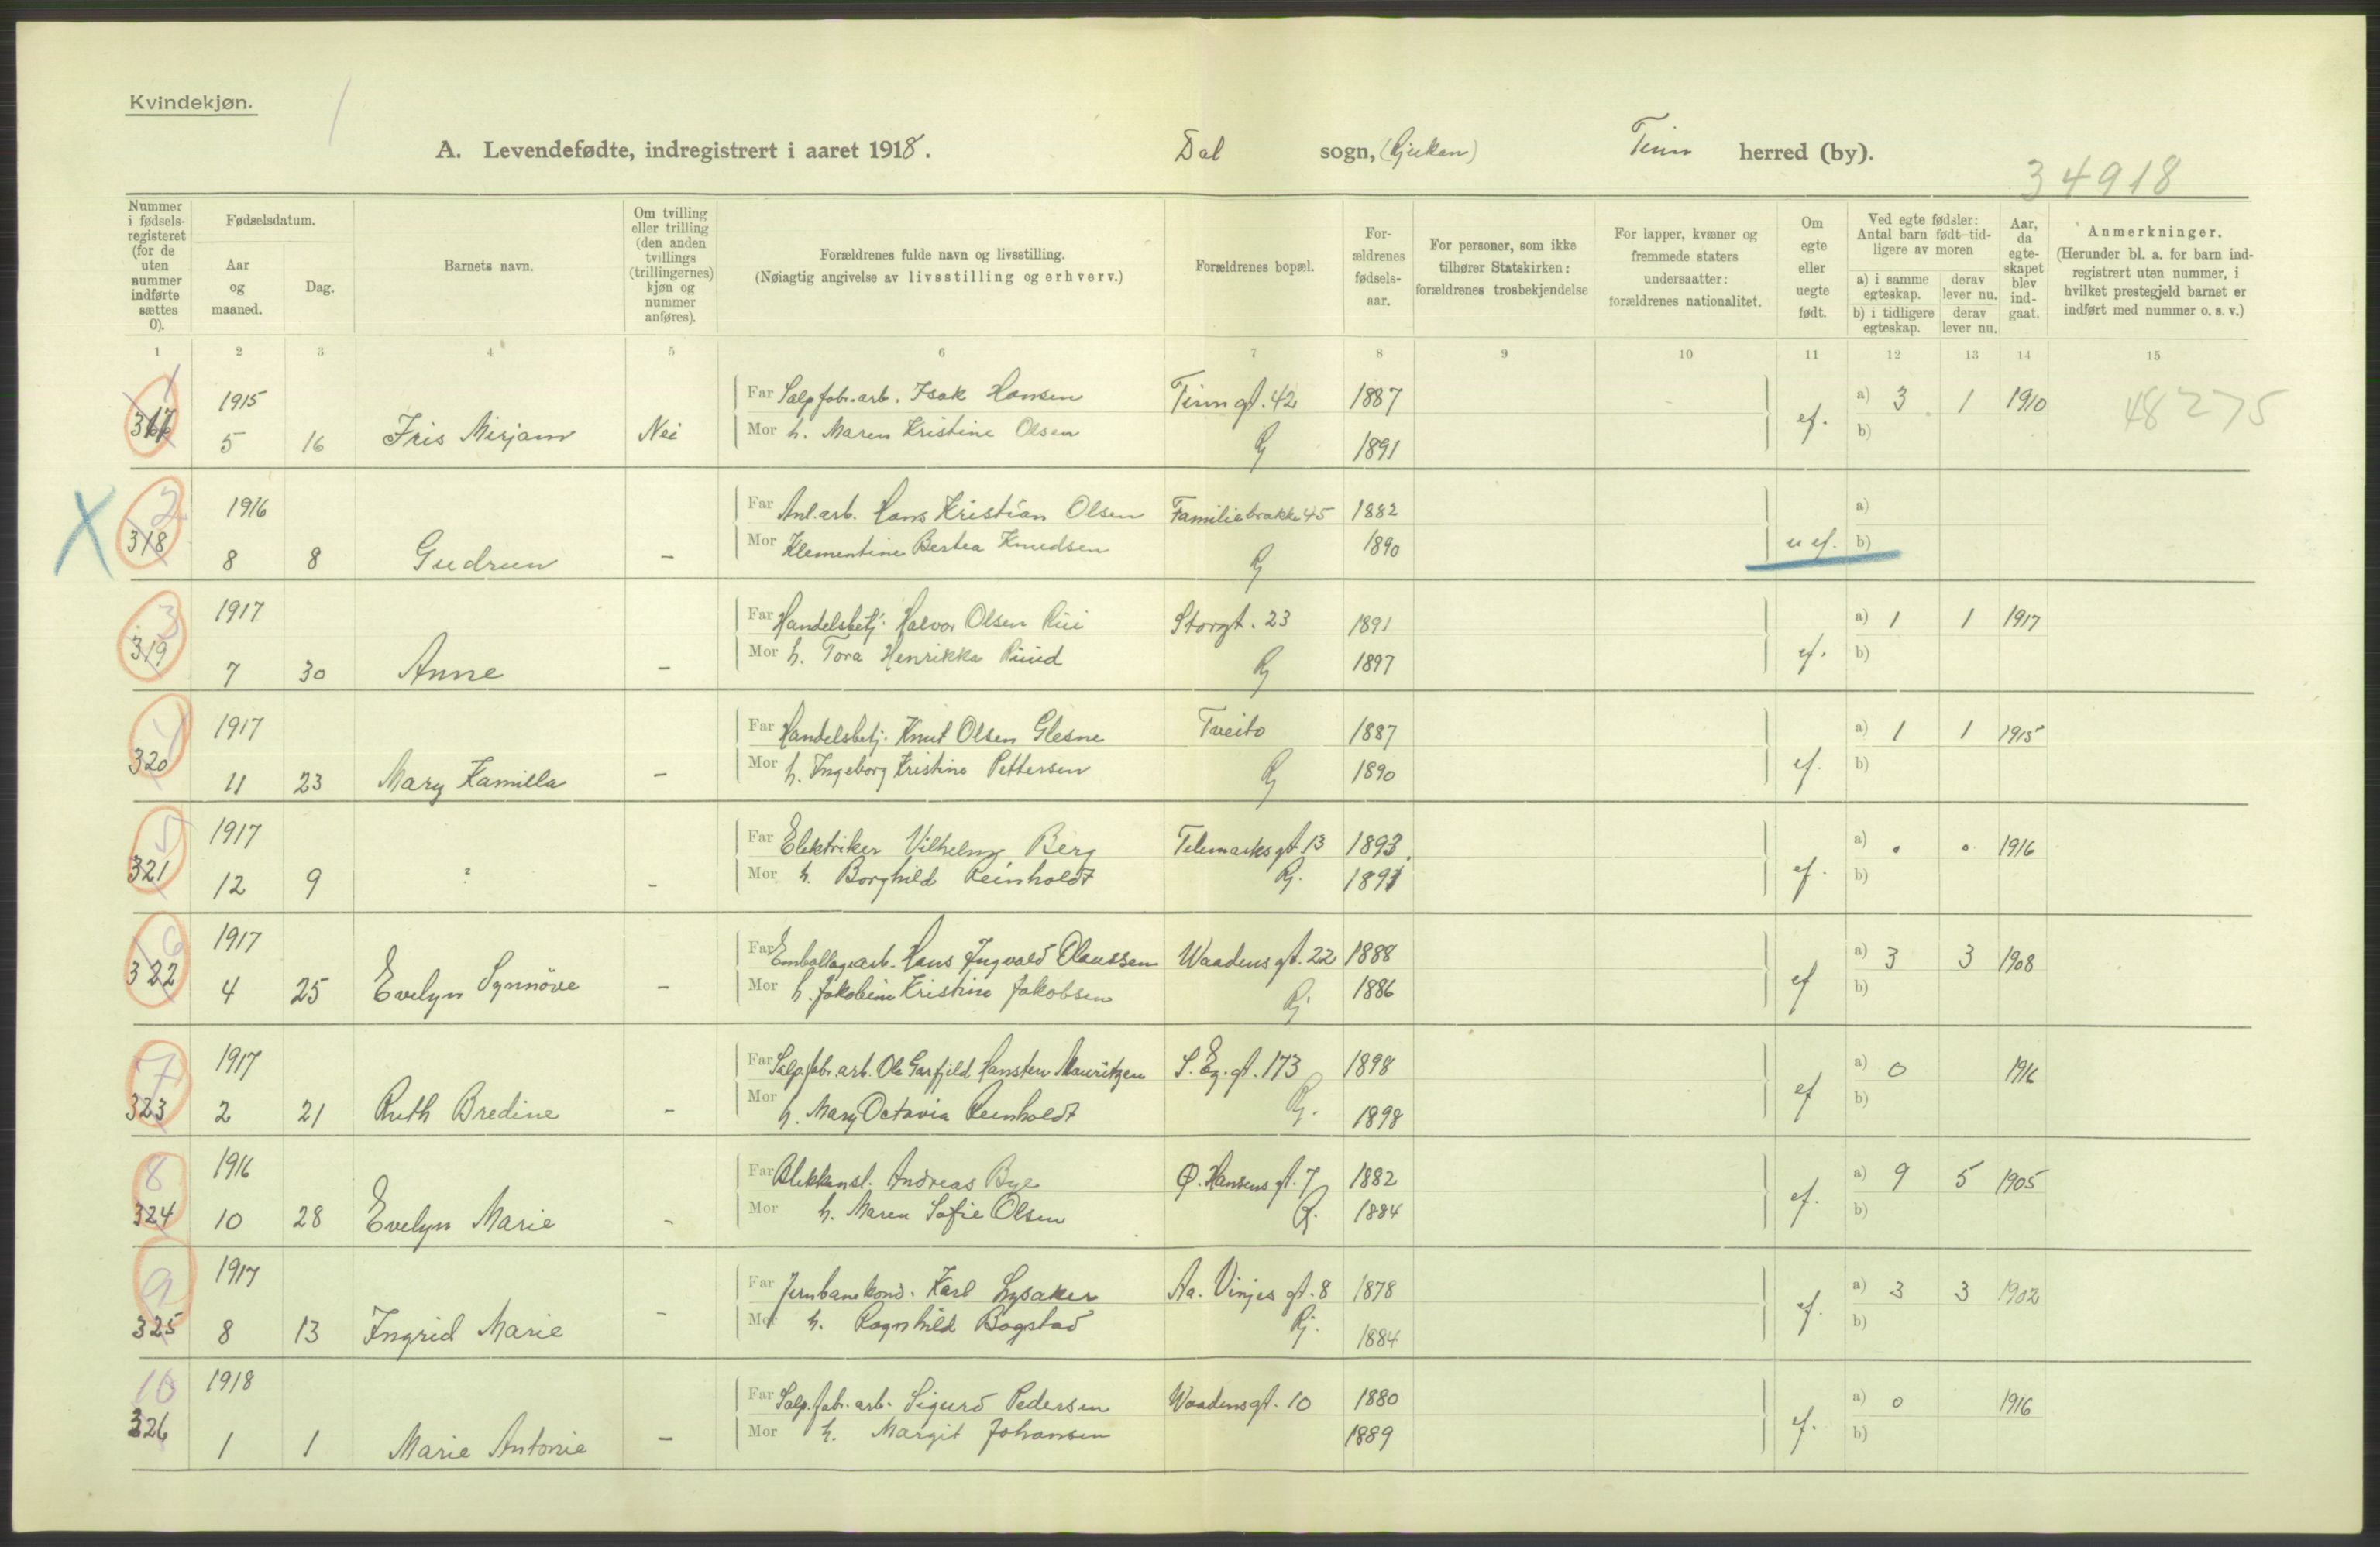 Kvindekjøn.
A. Levendefødte, indregistrert i aaret 1918. Dal sogn, (Rjukan) Tinn herred (by).
34918
Nummer i fødsels-registeret (for de uten nummer indførte sættes 0).
Fødselsdatum.
Aar og maaned.
Dag.
Barnets navn.
Om tvilling eller trilling (den anden tvillings (trillingernes) kjøn og nummer anføres).
Forældrenes fulde navn og livsstilling.
(Nøiagtig angivelse av livsstilling og erhverv.)
Forældrenes bopæl.
For-ældrenes fødsels-aar.
For personer, som ikke tilhører Statskirken: forældrenes trosbekjendelse
For lapper, kvæner og fremmede staters undersaatter: forældrenes nationalitet.
Om egte eller uegte født.
Ved egte fødsler: Antal barn født tid-ligere av moren
a) i samme egteskap. derav lever nu.
b) i tidligere egteskap. derav lever nu.
Aar, da egte-skapet blev ind-gaat.
Anmerkninger.
(Herunder bl. a. for barn ind-registrert uten nummer, i hvilket prestegjeld barnet er indført med nummer o. s. v.)
1 2 3 4 5 6 7 8 9 10 11 12 13 14 15
1 317 1915 Far Salp.fabr.arb. Isak Hansen Tinngt. 42 1887 a) 3 1 1910 48275
5 16 Iris Mirjam Nei Mor h. Maren Kristine Olsen Rj 1891 ef. b)
X 2 318 1916 Far Anl.arb. Hans Kristian Olsen Familiebrakke 45 1882 a)
8 8 Gudrun - Mor Klementine Bertea Knudsen Rj 1890 uef. b)
3 319 1917 Far Handelsbetj. Halvor Olsen Rui Storgt. 23 1891 a) 1 1 1917
7 30 Anne - Mor h. Tora Henrikka Ruud Rj 1897 ef. b)
4 320 1917 Far Handelsbetj. Knut Olsen Glesne Tveito 1887 a) 1 1 1915
11 23 Mary Kamilla - Mor h. Ingeborg Kristine Pettersen Rj 1890 ef. b)
5 321 1917 Far Elektriker Vilhelm Berg Telemarksgt. 13 1893 a) . . 1916
12 9 ? - Mor h. Borghild Reinholdt Rj. 1891 ef. b)
6 322 1917 Far Emballagearb. Hans Ingvald Olaussen Waadensgt. 22 1888 a) 3 3 1908
4 25 Evelyn Synnöve - Mor h. Jakobine Kristine Jakobsen Rj. 1886 ef b)
7 323 1917 Far Salp.fabr.arb. Ole Garfjeld Hansten Mauritzen S. Ey. gt. 173 1898 a) 0 1916
2 21 Ruth Bredine - Mor h. Mary Octavia Reinholdt Rj. 1898 ef b)
8 324 1916 Far Blikkensl. Andreas Bye O. Hansens gt. 7 1882 a) 9 5 1905
10 28 Evelyn Marie - Mor h. Maren Sofie Olsen Rj. 1884 ef. b)
9 325 1917 Far Jernbanekond. Karl Lysaker Aa. Vinjes gt. 8 1878 a) 3 3 1902
8 13 Ingrid Marie - Mor h. Ragnhild Bogstad Rj. 1884 ef. b)
10 326 1918 Far Salp.fabr.arb. Sigurd Pedersen Waadensgt. 10 1880 a) 0 1916
1 1 Marie Antonie - Mor h. Margit Johansen 1889 ef. b)